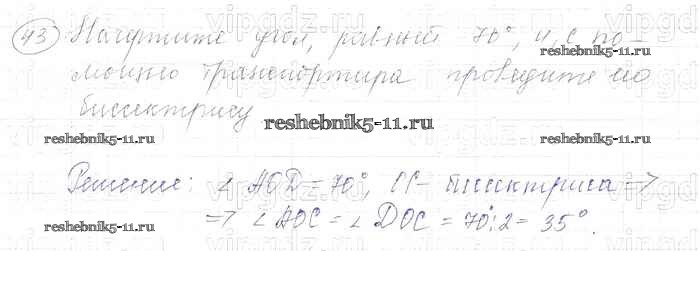 43 Начертите угол, равный 70°, и с по-
мощью транспортира проведите его
биссектрису
reshebnik5-11.ru
reshebnik5-11.ru
reshebnik5-11.ru
reshebnik5-11.ru
Решение: ∠ AOD = 70°, OC - биссектриса =>
=> ∠ AOC = ∠ DOC = 70°:2 = 35°.
reshebnik5-11.ru
reshebnik5-11.ru